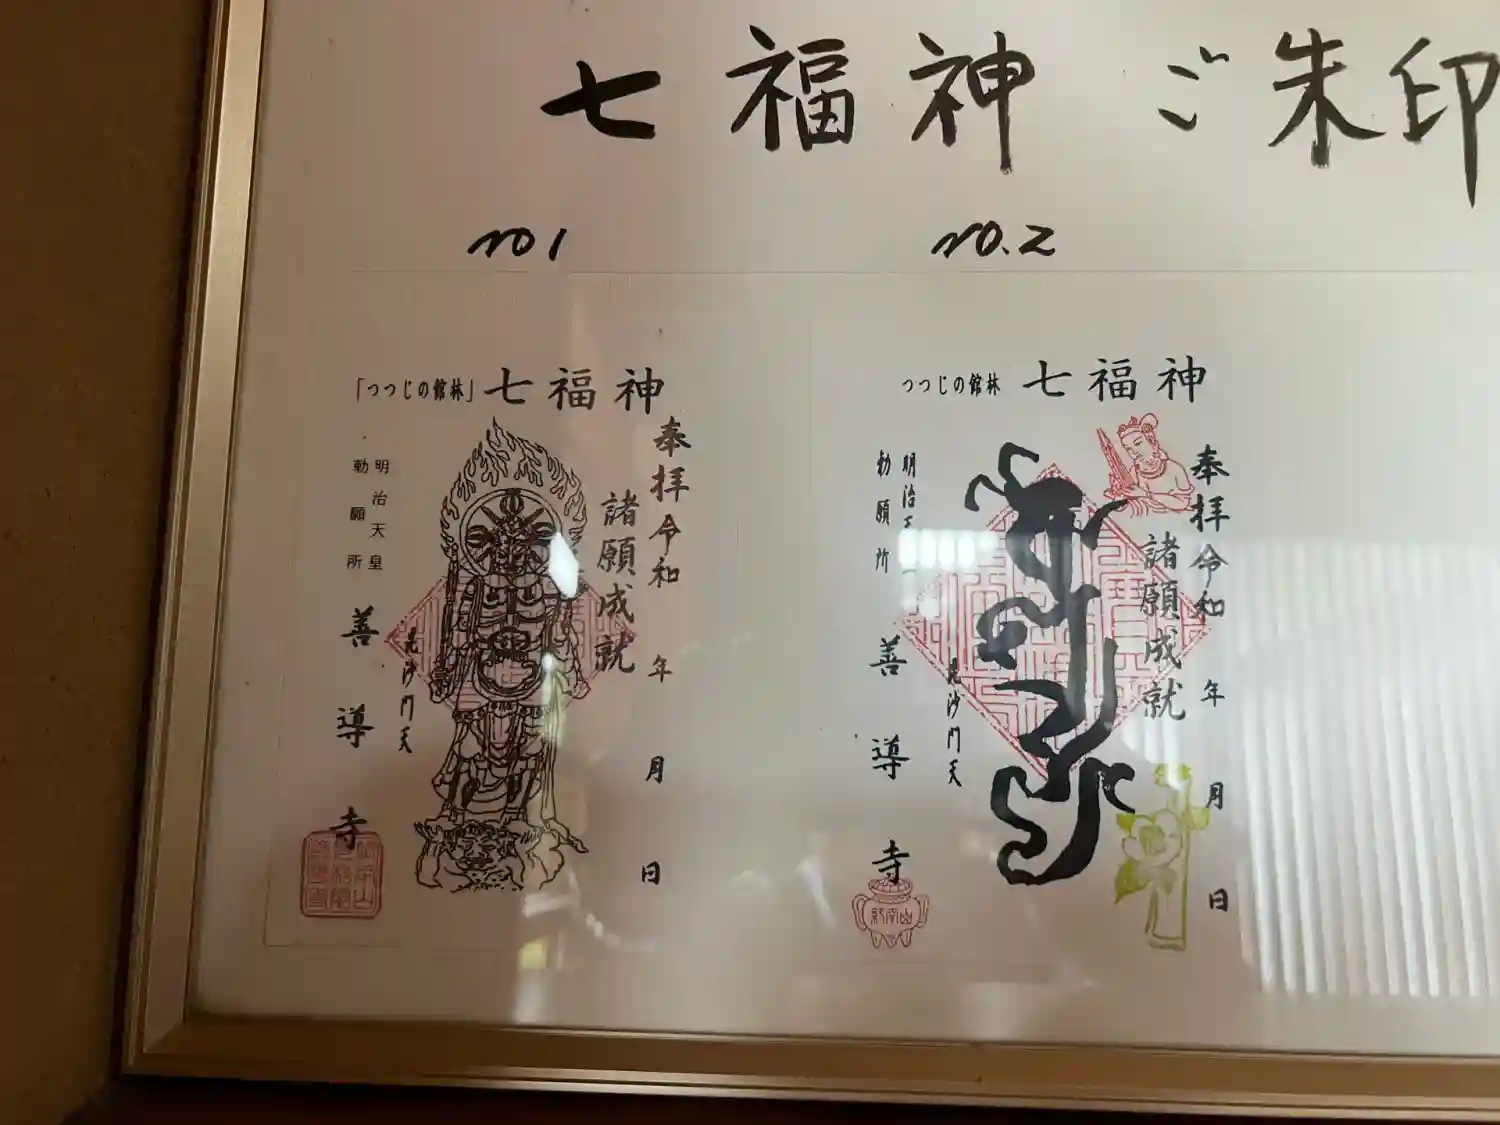 七福神 ご朱印
no 1
no.2
「つつじの館林」七福神
奉拝 令和 年 月 日
諸願成就
毘沙門天
明治天皇
勅願所
善導寺
つつじの館林 七福神
奉拝 令和 年 月 日
諸願成就
毘沙門天
明治天
勅願所
善導寺
終南山